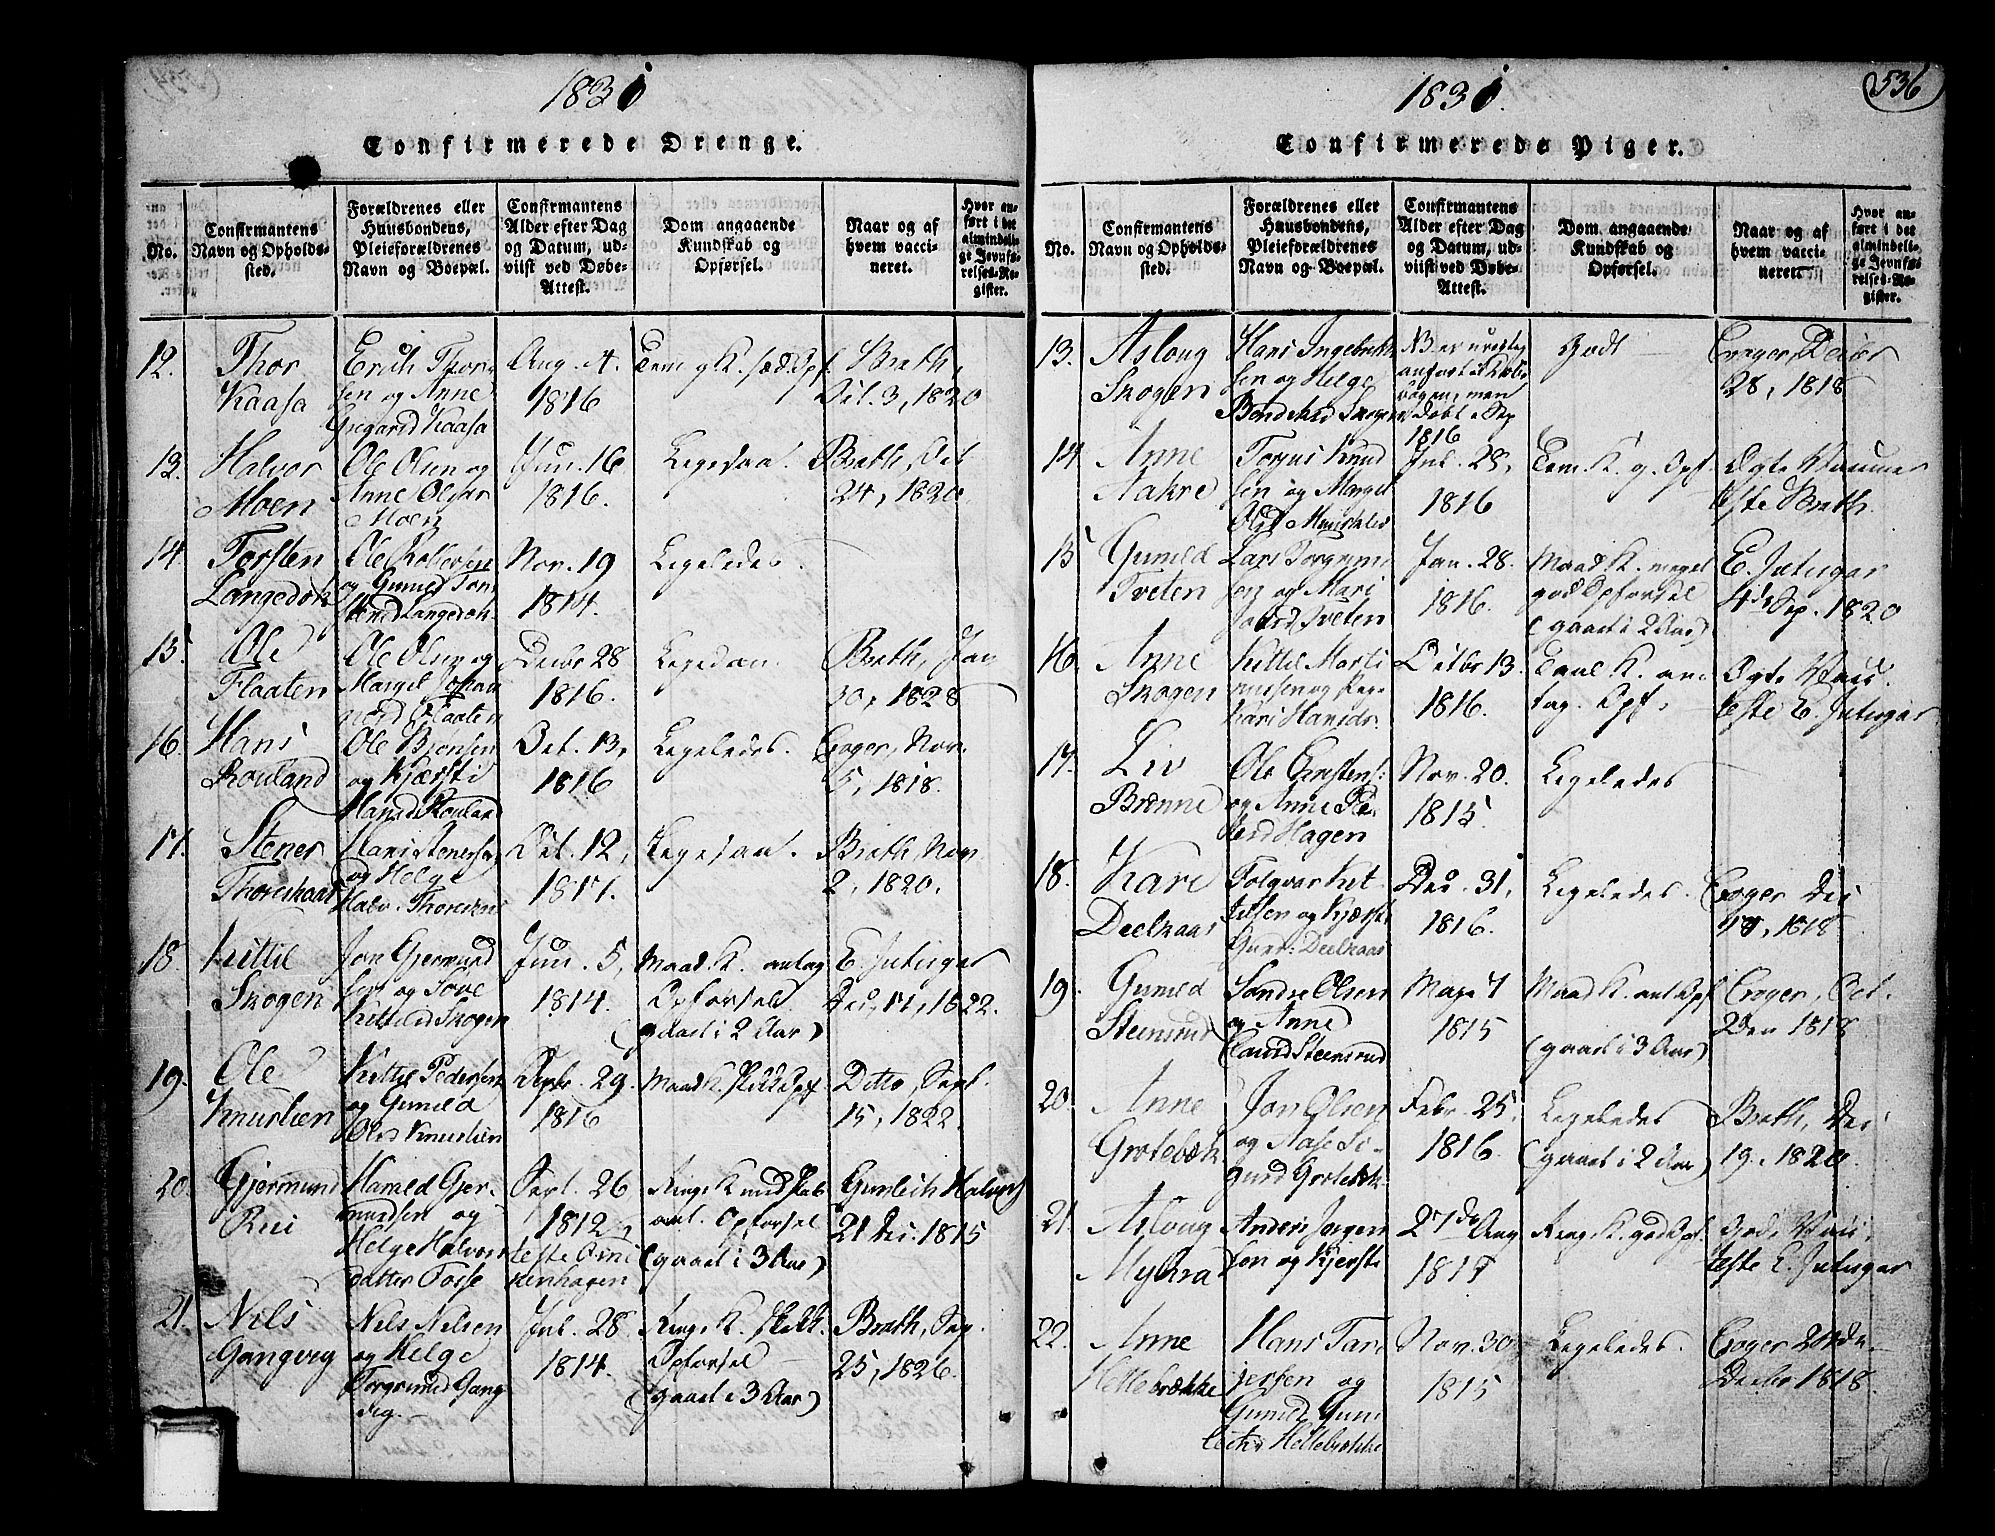 1831
Confirmerede Drenge.
No.
Confirmantens
Navn og Opholds-
sted.
Forældrenes eller
Huusbondens,
Pleieforældrenes
Navn og Boepæl.
Confirmantens
Alder efter Dag
og Datum, ud-
viist ved Døbe-
Attest.
Dom angaaende
Kundskab og
Opførsel.
Naar og af
hvem vacci-
neret.
Hvor an-
ført i det
almindeli-
ge Jevnfø-
relses-Re-
gister.
12.
Thor
Kaasa
Erich Thor-
sen og Anne
Gregarsd Kaasa
Aug. 4.
1816
Tem. g K. sæd. Opf.
Brath,
3, 1820
13.
Halvor
Moen
Ole Olsen og
Anne Olsdr
Moen
Jun. 16
1816.
Ligesaa.
Brath, Oct
24, 1820
14
Torsten
Langedok
Ole
og Gunild Tor-
stensd Langedok.
Nov. 19
1814.
Ligeledes.
15.
Ole
Flaaten
Ole Olsen og
Margit
Flaaten
Decbr 28
1816.
Ligesaa.
Brath, Jan
30, 1828
16.
Hans
Rouland
Ole Bjønsen
og Kjærsti
Hansd Rouland
Oct. 13,
1816
Ligeledes.
Croger, Nov.
5, 1818.
17.
Stener
Thoreskaas
Hans Stenersen
og Helge
Halv. Thoresk
Oct. 12,
1817.
Ligesaa.
Brath, Nov
2, 1820.
18.
Kittil
Skogen
Jon Gjermund
sen og Tove
Kittilsd Skogen
Jun. 5,
1814.
Maadl. K. antag
Opførsel
(gaaet i 2 Aar)
E. Intugar
Dec, 17, 1822.
19.
Ole
Knuslien
Kittil Pedersen
og Gunild
Olsd Knuslien
Septbr. 29.
1816
Maadl K. skikk Opf
Ditto, Sept.
15, 1822.
20.
Gjermund
Rui
Harald Gjer-
mudsen og
Helge Halvors
datter Fosse
Sept. 26
1812,
teste
Ring. Kundskab
ant. Opførsel
(gaaet i 3 Aar)
Gunleich Halvors
21 Dec. 1815
21.
Nils
Gangveg
Nils Nilsen
og Helge
Torgrimsd Gang
veg.
Jul. 28
1814.
Ring. K. skikk.
Opførsel
(gaaet i 3 Aar)
Brath, Sep.
25, 1826.
1831.
536
Confirmerede Piger.
No.
Confirmantens
Navn og Opholds-
sted.
Forældrenes eller
Huusbondens,
Pleieforældrenes
Navn og Boepæl.
Confirmantens
Alder efter Dag
og Datum, ud-
viist ved Døbe-
Attest.
Dom angaaende
Kundskab og
Opførsel.
Naar og af
hvem vacci-
neret.
Hvor an-
ført i det
almindeli-
ge Jevnfø-
relses-Re-
gister.
13.
Asloug
Skogen
Hans Ingebricht
sen og Helge
Bendiksd Skogen
NB. er urigtig
anført i Kirke
bogen, men
døbt i Sep
1816
Godt
Croger, Decbr
28, 1818
14
Anne
Aakre
Torgus Knud
sen og Margit
Olsd
Jul. 28,
1816
Tem. K. g. Opf.
Ægte Vaccine
teste Brath.
15
Gunild
Tveten
Lars Torgrim
sen og Mari
Tveten
Jan. 28.
1816.
Maadl K. meget
god Opførsel
(gaaet i 2 Aar)
E. Intugar
4de Sep. 1820
16.
Anne
Skogen
Kittil Marti
nussen og
Kari Hansdr.
Octbr 13.
1816.
Taal. K. an-
tag. Opf.
Ægte Vacc.
teste E. Intugar
17.
Liv
Brønne
Ole Carstens:
og Anne Pe-
dersd Hagen
Nov. 20.
1815.
Ligeledes
18.
Kari
Deelkaas
Folqvar Kit-
tilsen og Kjærsti
Gunn: Deelkaas
Dec. 31,
1816.
Ligeledes.
Croger Dec
18, 1818
19.
Gunild
Steensrud
Sondre Olsen
og Anne
Steensrud
Maji 7
1815
Maadl K. ant Opf
(gaaet i 3 Aar)
Croger, Oct.
2den 1818
20.
Anne
Grotebæk
Jon Olsen
og Aase Si-
gursd Grotebæk.
Febr. 25,
1816.
Ligeledes
(gaaet i 2 Aar)
Brath, Dec
19. 1820.
21.
Asloug
Myhra
Anders Jørgen
sen og Kjersti
27de Aug
1817
Ring. K. god Opf.
Vacc.
teste E. Intugar
22.
Anne
Hellebrække
Hans Tar-
jersen og
Gunild Gun-
leichs Hellebrække
Nov. 30
1815
Ligeledes.
Croger 24de
Decbr 1818.